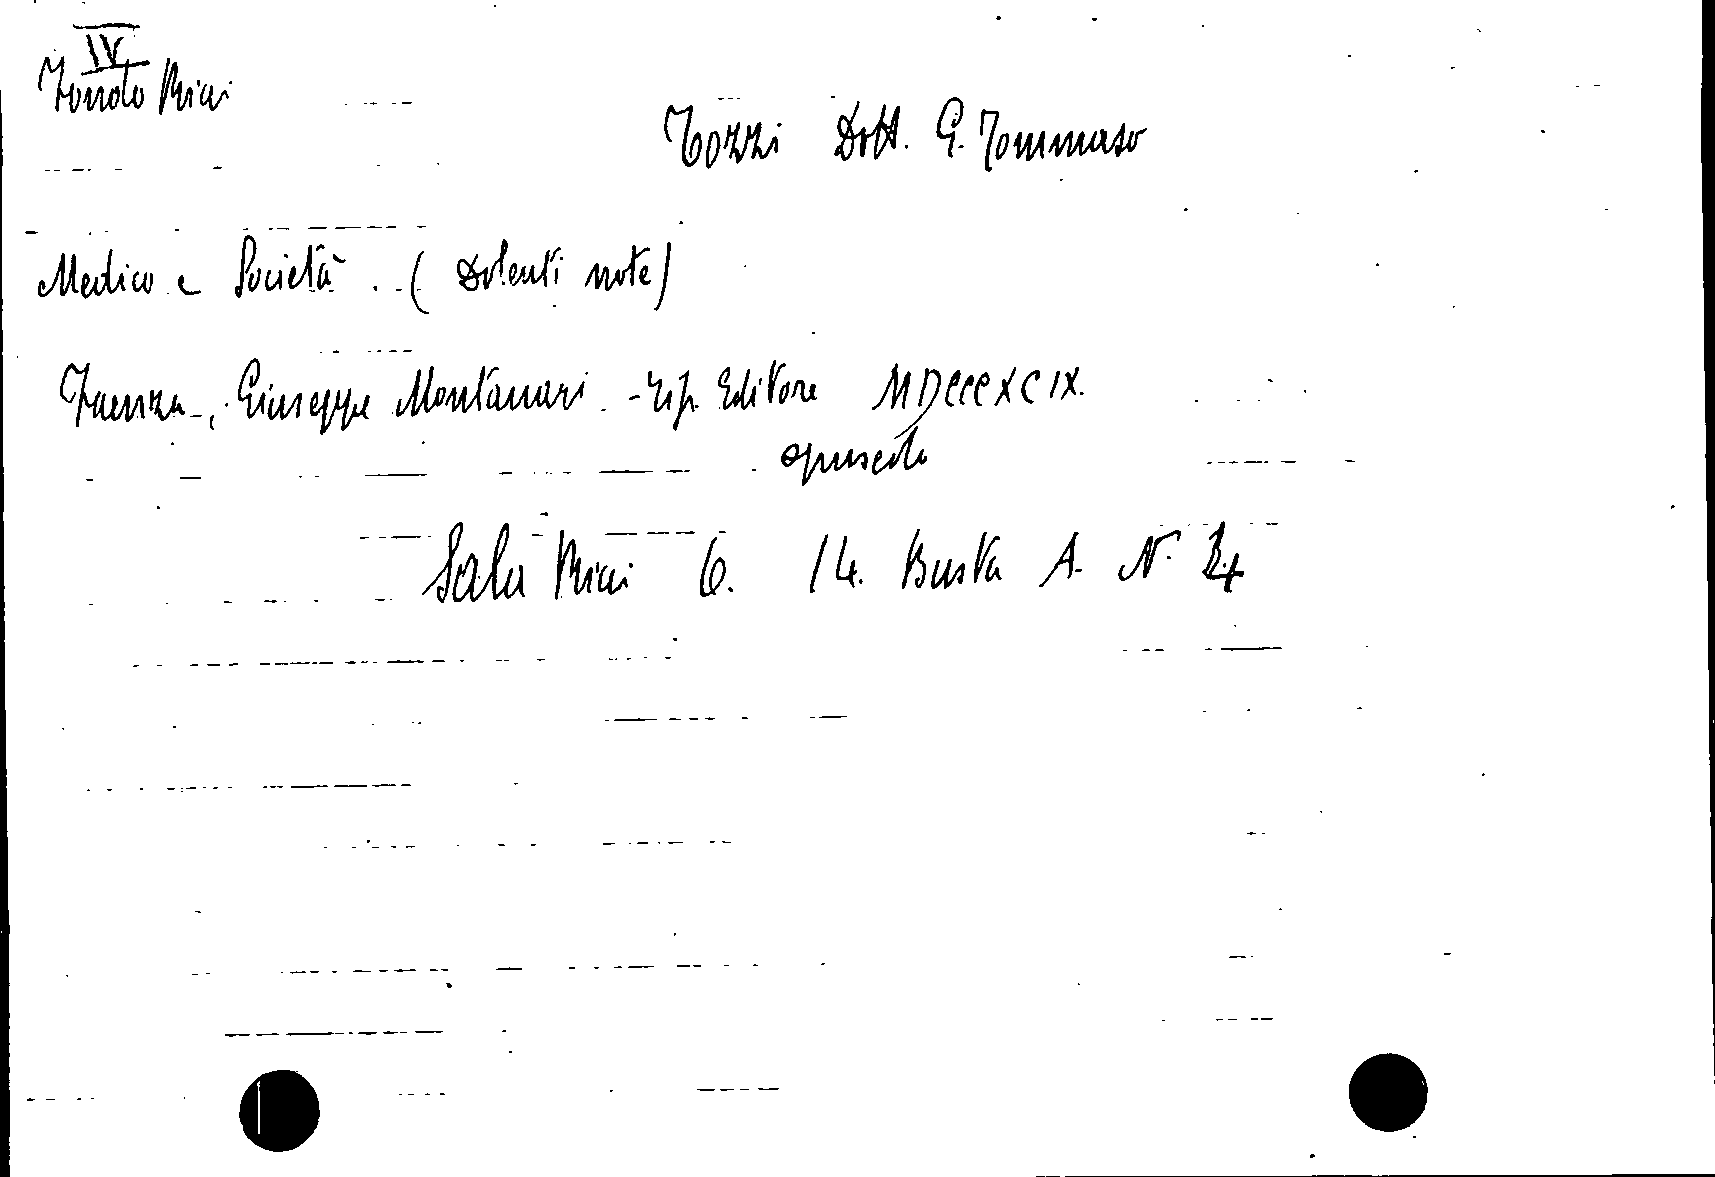 IV
Fondo Ricci
Tozzi Dott. G. Tommaso
Medico e Società. (Dolenti note)
Faenza, Giuseppe Montanari - Tip. Editore MDCCCXCIX.
opuscolo
Sala Ricci 6. 14. Busta A. N.